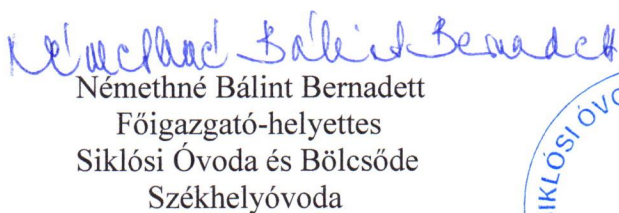 Némethné Bálint Bernadett
Némethné Bálint Bernadett
Főigazgató-helyettes
Siklósi Óvoda és Bölcsőde
Székhelyóvoda
IKLÓSI ÓVO